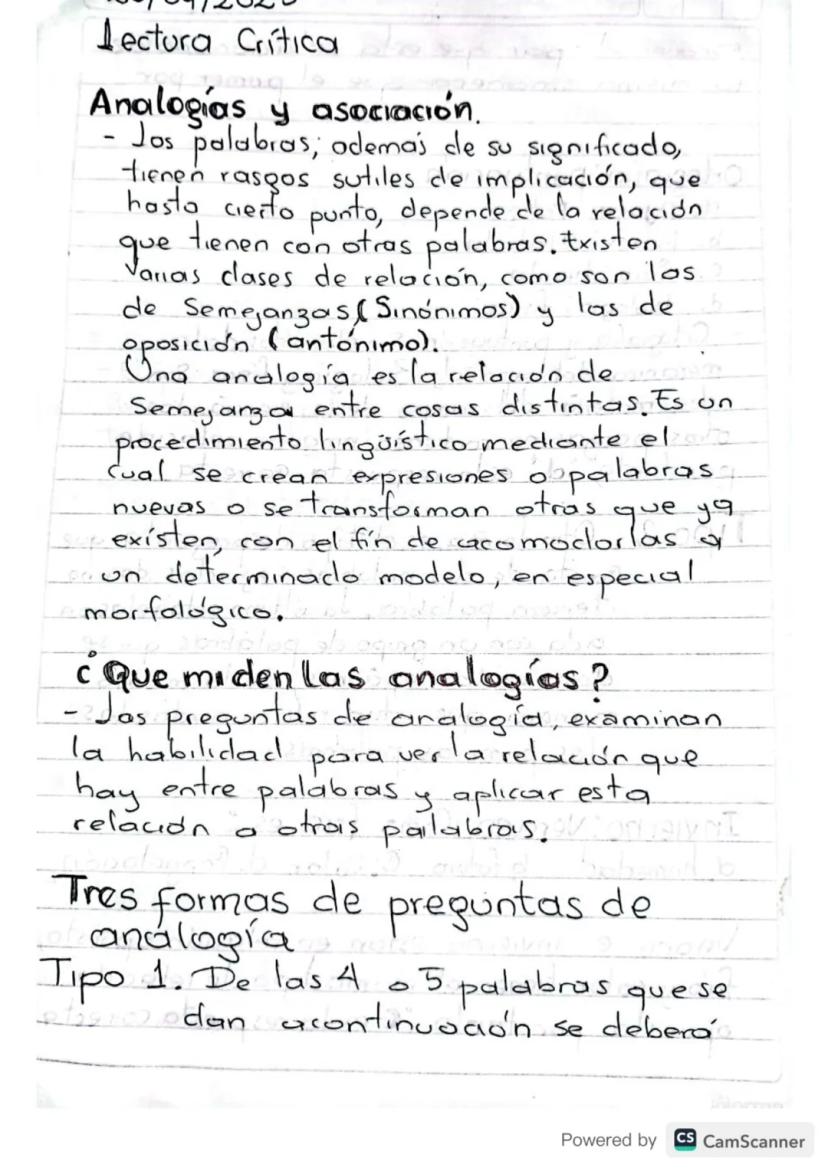 Lectura Crítica
Analogías y asociación.
- Las palabras, además de su significado,
tienen rasgos sutiles de implicación, que
hasta cierto punto, depende de la relación
que tienen con otras palabras. Existen
Varias clases de relación, como son las
de Semejanzas (Sinónimos) y las de
oposición (antónimo).
Una analogía es la relación de
Semejanza entre cosas distintas. Es un
procedimiento lingüístico mediante el
cual se crean expresiones o palabras
nuevas o se transforman otras que ya
existen, con el fin de acomodarlas a
un determinado modelo, en especial
morfológico.
¿Que miden las analogías?
- Las preguntas de analogía, examinan
la habilidad para ver la relación que
hay entre palabras y aplicar esta
relación a otras palabras.
Tres formas de preguntas de
analogía
Tipo 1. De las 4 o 5 palabras que se
dan acontinuación se deberá
Powered by CS CamScanner